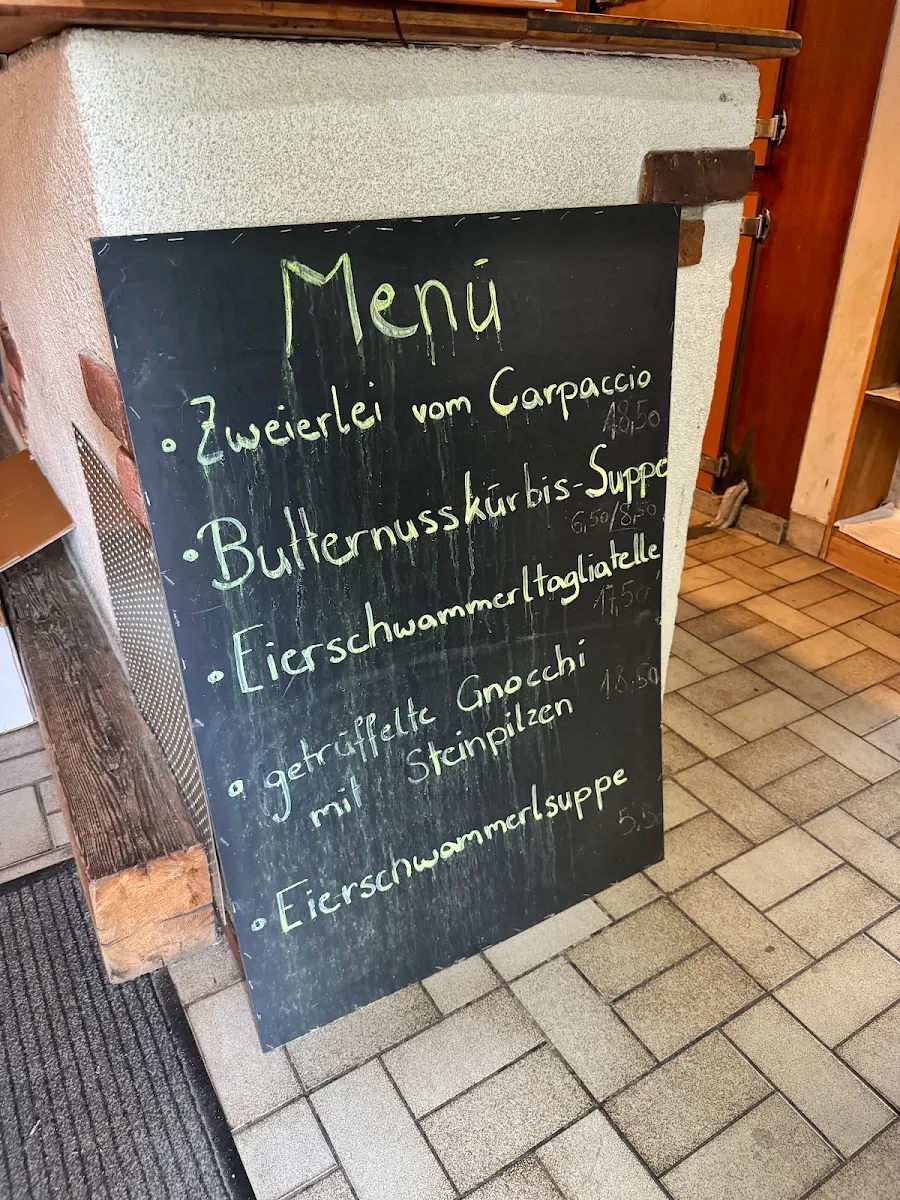 Menü
Zweierlei vom Carpaccio
18,50
Butternusskürbis-Suppe
6,50/8,50
Eierschwammerltagliatelle
17,50
getrüffelte Gnocchi
18,50
mit Steinpilzen
Eierschwammerlsuppe